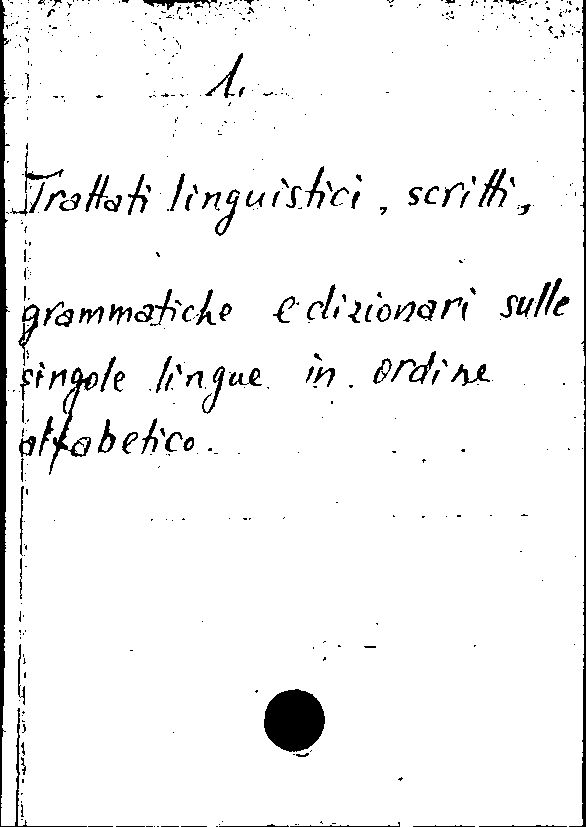 1.
Trattati linguistici, scritti,
grammatiche e dizionari sulle
singole lingue in ordine
alfabetico.